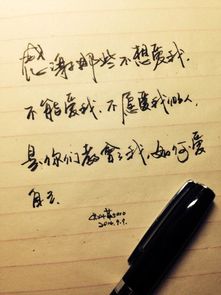 感谢那些不想爱我,
不能爱我,不愿爱我的人,
是你们教会了我,如何爱
自己.
2010.9.9.